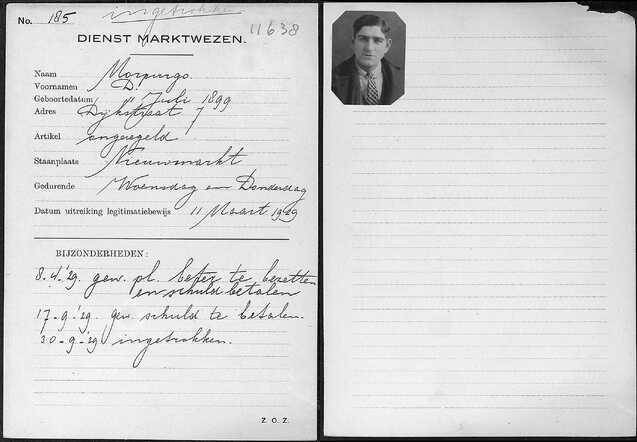 No. 185 ingetrokken 11638
DIENST MARKTWEZEN.
Naam Morpurgo.
Voornamen D.
Geboortedatum 11 Juli 1899
Adres Dijkstraat 7
Artikel ongeregeld
Staanplaats Nieuwmarkt
Gedurende Woensdag en Donderdag
Datum uitreiking legitimatiebewijs 11 Maart 1929
BIJZONDERHEDEN:
8-4-'29. gew. pl. beter te bezetten
en schuld betalen
17-9-'29. gew. schuld te betalen.
30-9-'29 ingetrokken.
Z. O. Z.